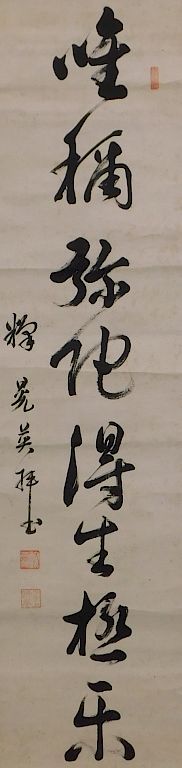 唯称弥陀得生極楽
釋晃英拝書